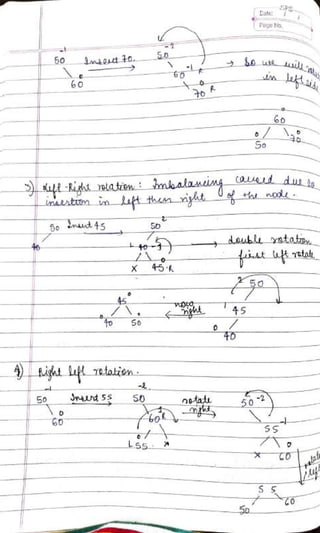 Date: / /
Page No.
-1 50 Insert 70. -2 50 → So we will rotate
0 60 -1 60 R in left side
0 70 R
0 60
0 50 0 70
3) Left-Right rotation: Imbalancing caused due to
insertion in left then right of the node.
50 Insert 45 2 50
40 L 40 -1 → double rotation
X 45 R first left rotate
2 50
0 45 now right 1 45
0 40 0 50 0 40
4) Right left rotation.
-1 50 Insert 55 -2 50 rotate right 50 -2
0 60 60 1 R 55 -1
L 55 X X 60 0
rotate left
55
50 60